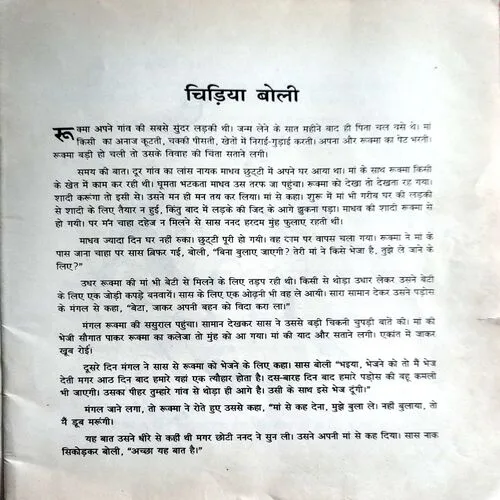 चिड़िया बोली
रूक्मा अपने गांव की सबसे सुंदर लड़की थी। जन्म लेने के सात महीने बाद ही पिता चल बसे थे। मां
किसी का अनाज कूटती, चक्की पीसती, खेतों में निराई-गुड़ाई करती। अपना और रूक्मा का पेट भरती।
रूक्मा बड़ी हो चली तो उसके विवाह की चिंता सताने लगी।
समय की बात। दूर गांव का लांस नायक माधव छुट्टी में अपने घर आया था। मां के साथ रूक्मा किसी
के खेत में काम कर रही थी। घूमता भटकता माधव उस तरफ जा पहुंचा। रूक्मा को देखा तो देखता रह गया।
शादी करूगा तो इसी से। उसने मन ही मन तय कर लिया। मां से कहा। शुरू में मां भी गरीब घर की लड़की
से शादी के लिए तैयार न हुई, किंतु बाद में लड़के की जिद के आगे झुकना पड़ा। माधव की शादी रूक्मा से
हो गयी। पर मन चाहा दहेज न मिलने से सास ननद हरदम मुंह फुलाए रहती थी।
माधव ज्यादा दिन घर नहीं रुका। छुट्टी पूरी हो गयी। वह काम पर वापस चला गया। रूक्मा ने मां के
पास जाना चाहा पर सास बिफर गई, बोली, "बिना बुलाए जाएगी? तेरी मां ने किसे भेजा है, तुझे ले जाने के
लिए?"
उधर रूक्मा की मां भी बेटी से मिलने के लिए तड़प रही थी। किसी से थोड़ा उधार लेकर उसने बेटी
के लिए एक जोड़ी कपड़े बनवाये। सास के लिए एक ओढ़नी भी वह ले आयी। सारा सामान देकर उसने पड़ोस
के मंगल से कहा, "बेटा, जाकर अपनी बहन को विदा करा ला।"
मंगल रूक्मा की ससुराल पहुंचा। सामान देखकर सास ने उससे बड़ी चिकनी चुपड़ी बातें की। मां की
भेजी सौगात पाकर रूक्मा का कलेजा तो मुंह को आ गया। मां की याद और सताने लगी। एकांत में जाकर
खूब रोई।
दूसरे दिन मंगल ने सास से रूक्मा को भेजने के लिए कहा। सास बोली "भइया, भेजने को तो मैं भेज
देती मगर आठ दिन बाद हमारे यहां एक त्यौहार होता है। दस-बारह दिन बाद हमारे पड़ोस की बहू कमली
भी जाएगी। उसका पीहर तुम्हारे गांव से थोड़ा ही आगे है। उसी के साथ इसे भेज दूंगी।"
मंगल जाने लगा, तो रूक्मा ने रोते हुए उससे कहा, "मां से कह देना, मुझे बुला ले। नहीं बुलाया, तो
मैं डूब मरूंगी।
यह बात उसने धीरे से कही थी मगर छोटी ननद ने सुन ली। उसने अपनी मां से कह दिया। सास नाक
सिकोड़कर बोली, "अच्छा यह बात है।"